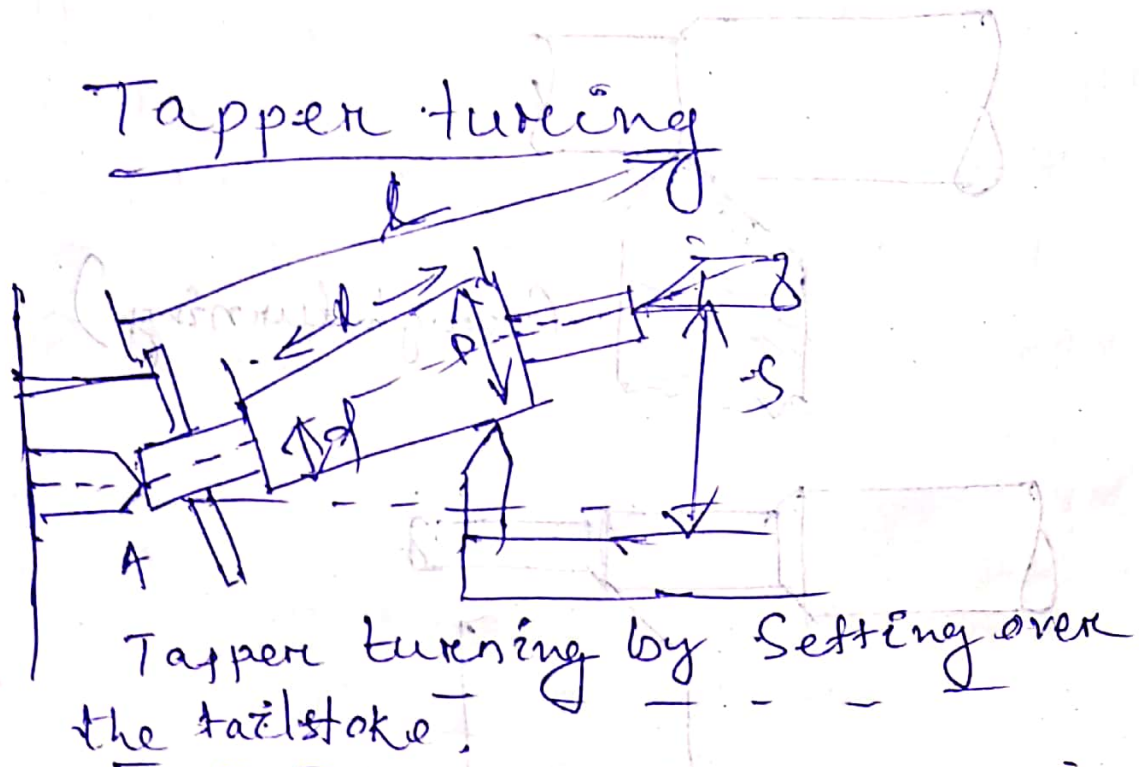 Tapper turcing
L
l
D
S
d
A
Tapper turning by Setting over
the tailstoke.